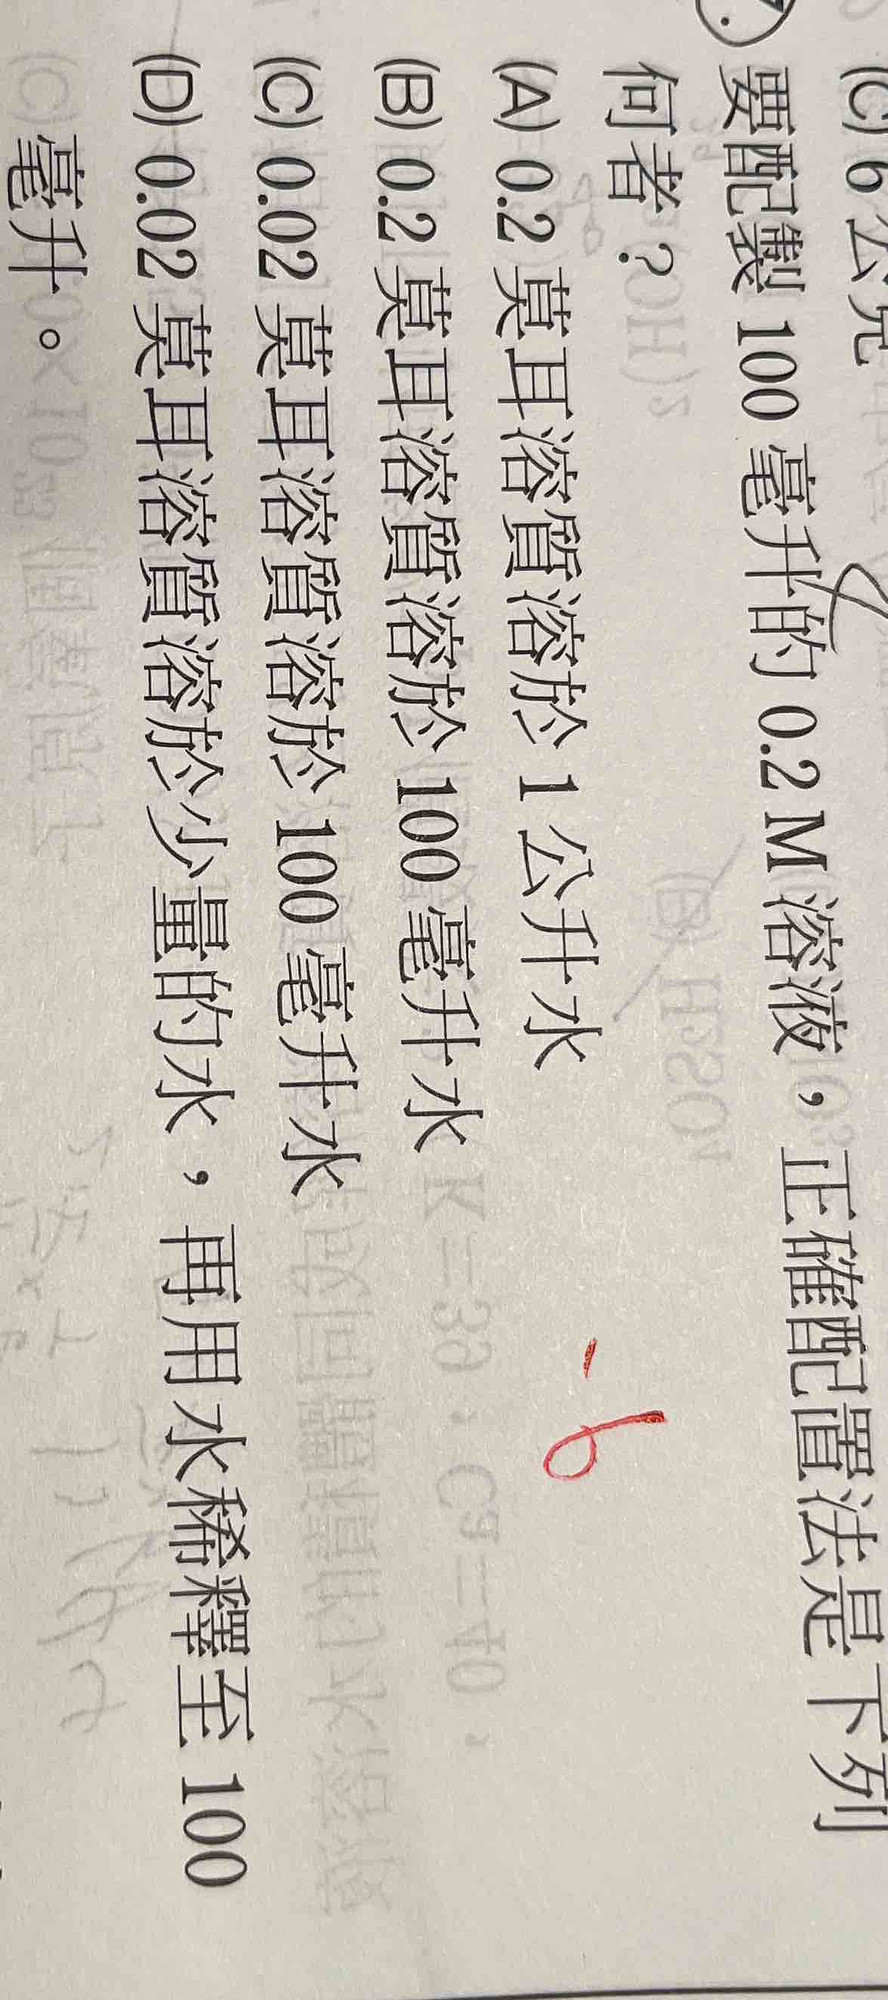 (C) 6 公克
要配製 100 毫升的 0.2 M 溶液，正確配置法是下列
何者？
(A) 0.2 莫耳溶質溶於 1 公升水
(B) 0.2 莫耳溶質溶於 100 毫升水
(C) 0.02 莫耳溶質溶於 100 毫升水
(D) 0.02 莫耳溶質溶於少量的水，再用水稀釋至 100
毫升。
-6